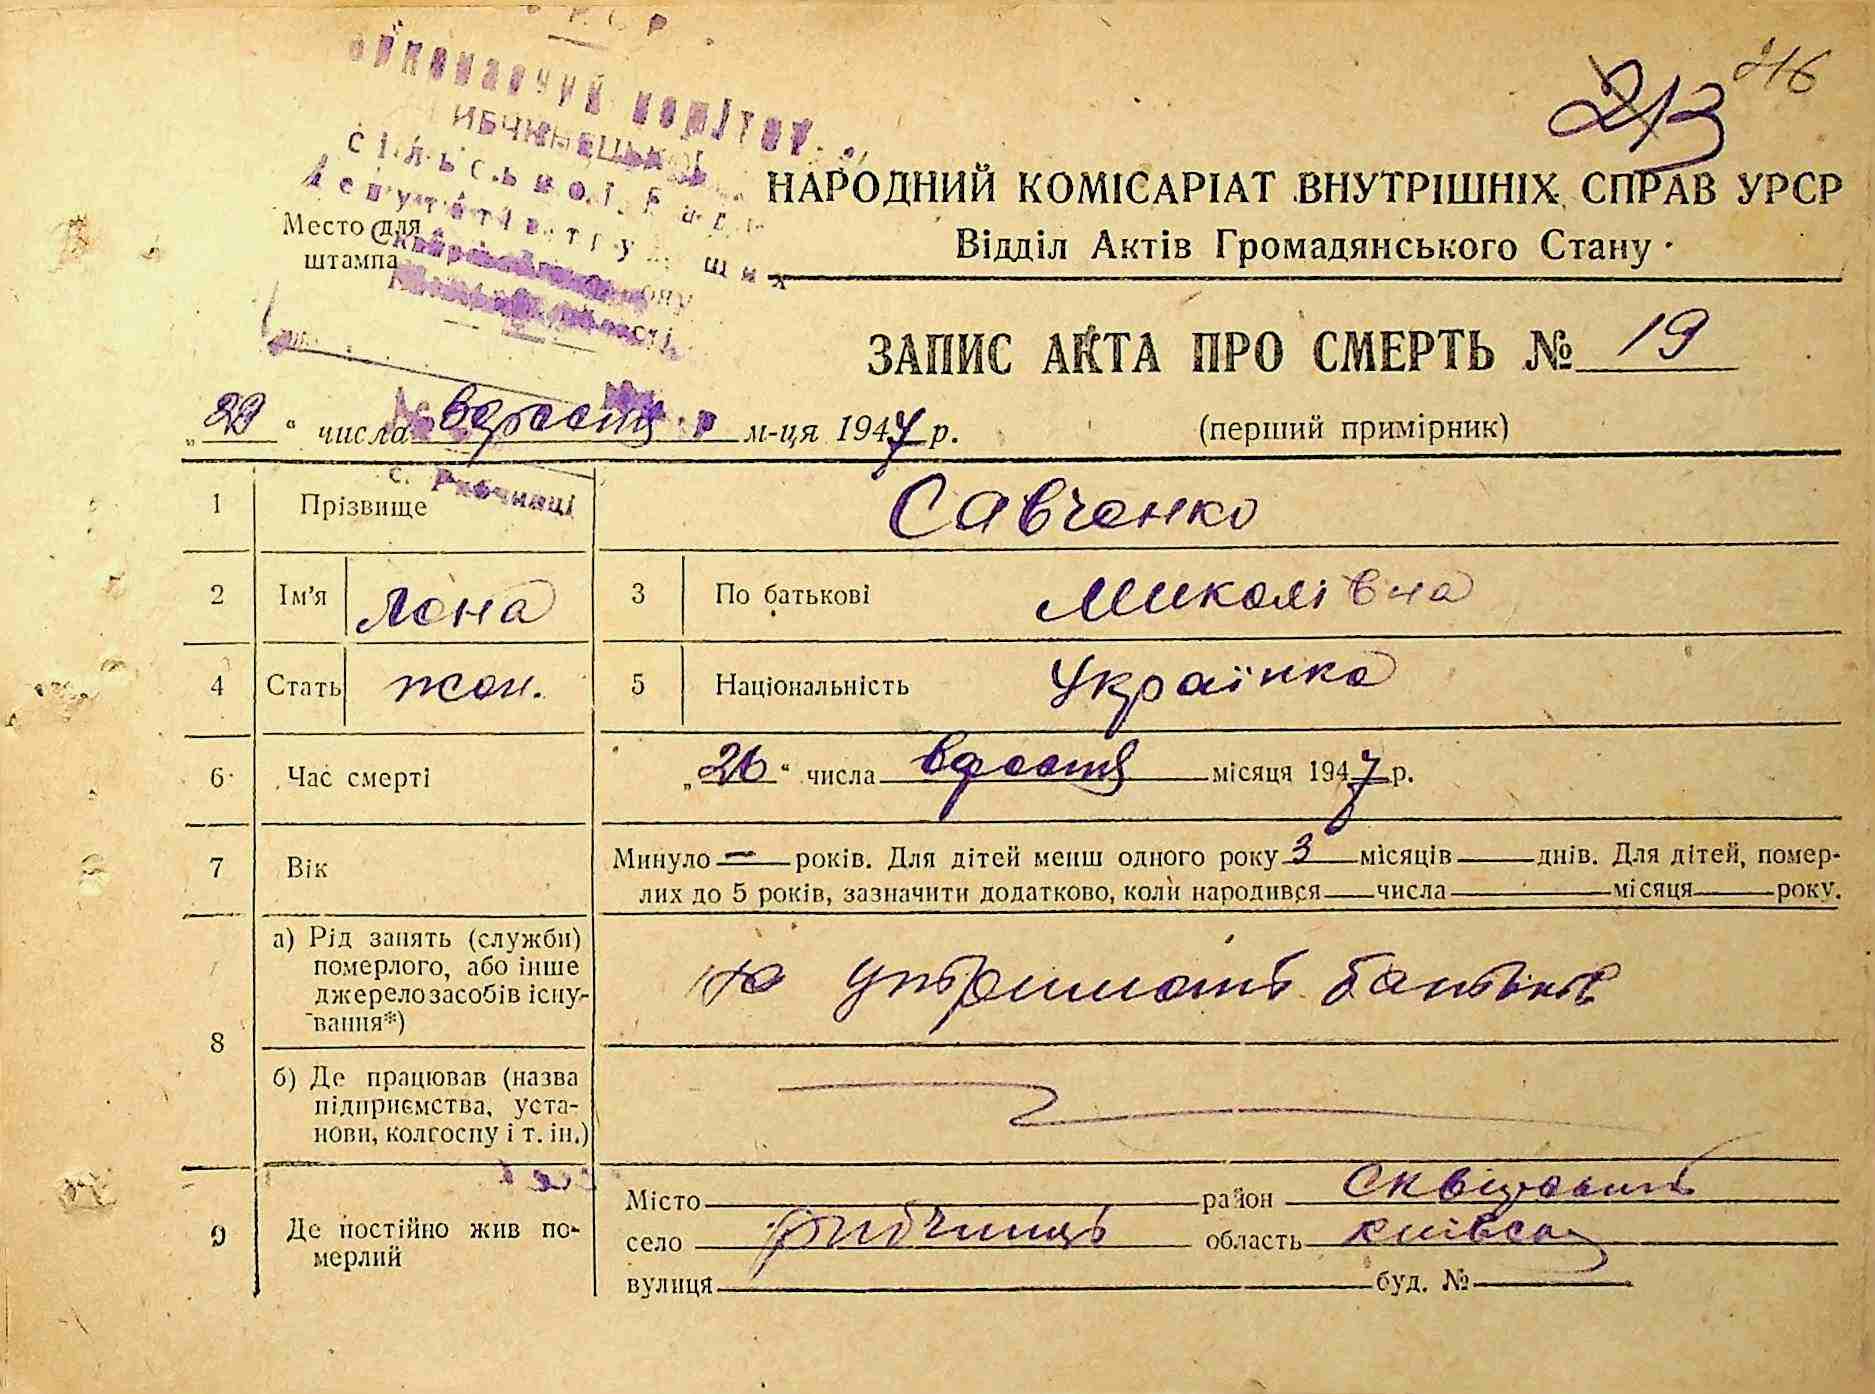 46
213
иконавчий комітет
ибчинецької
сільської Ради
депутатів трудящих
Сквирського району
Київської області
Место для
штампа
с. Рибчинці
НАРОДНИЙ КОМІСАРІАТ ВНУТРІШНІХ СПРАВ УРСР
Відділ Актів Громадянського Стану
ЗАПИС АКТА ПРО СМЕРТЬ № 19
„29“ числа вересня м-ця 1947 р. (перший примірник)
1 Прізвище Савченко
2 Ім'я Лєна 3 По батькові Миколівна
4 Стать жен. 5 Національність Українка
6 Час смерті „26“ числа вересня місяця 1947 р.
7 Вік Минуло — років. Для дітей менш одного року 3 місяців днів. Для дітей, помер-
лих до 5 років, зазначити додатково, коли народився числа місяця року.
8 а) Рід занять (служби)
померлого, або інше
джерело засобів існу-
вання*) на утримані батьків
б) Де працював (назва
підприємства, уста-
нови, колгоспу і т. ін.)
9 Де постійно жив по-
мерлий
Місто район Сквирський
село Рибчинці область Київсь
вулиця буд. №